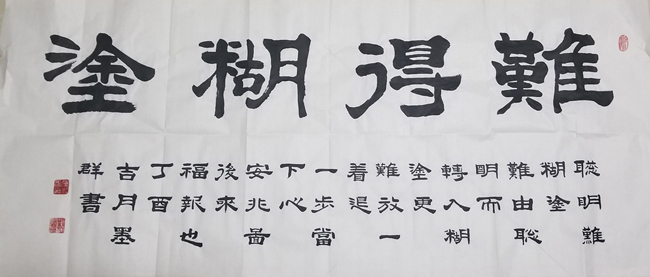 難得糊塗
聡明難
糊塗
難由聡
明而
轉入糊
塗更
難放一
着退
一步當
下心
安非啚
後来
福報也
丁酉
吉月墨
群書